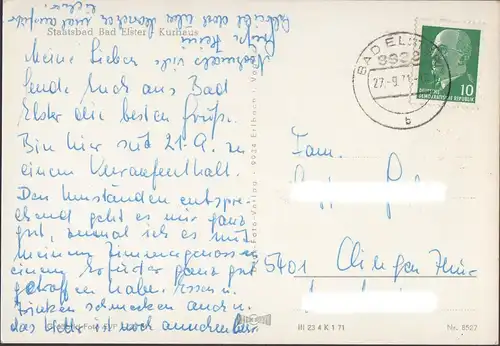 Staatsbad Bad Elster · Kurhaus
Meine Lieben
sende Euch aus Bad
Elster die besten Grüße.
Bin hier seit 21.9. zu
einem Kuraufenthalt.
Den Umständen entspre-
chend geht es mir ganz
gut, zumal ich es mit
meinem Zimmergenossen
einem Erfurter ganz gut
getroffen habe. Essen u.
Trinken schmecken auch u.
das Wetter ist noch annehmbar
Nochmals viele
Grüße Heinz
BAD ELSTER
9933
27.-9.71
b
DEUTSCHE
DEMOKRATISCHE REPUBLIK 10
Fam.
5401 Clingen Thür
Foto-Verlag · 9934 Erlbach i. Vogtl.
III 23 4 K 1 71
Nr. 8527